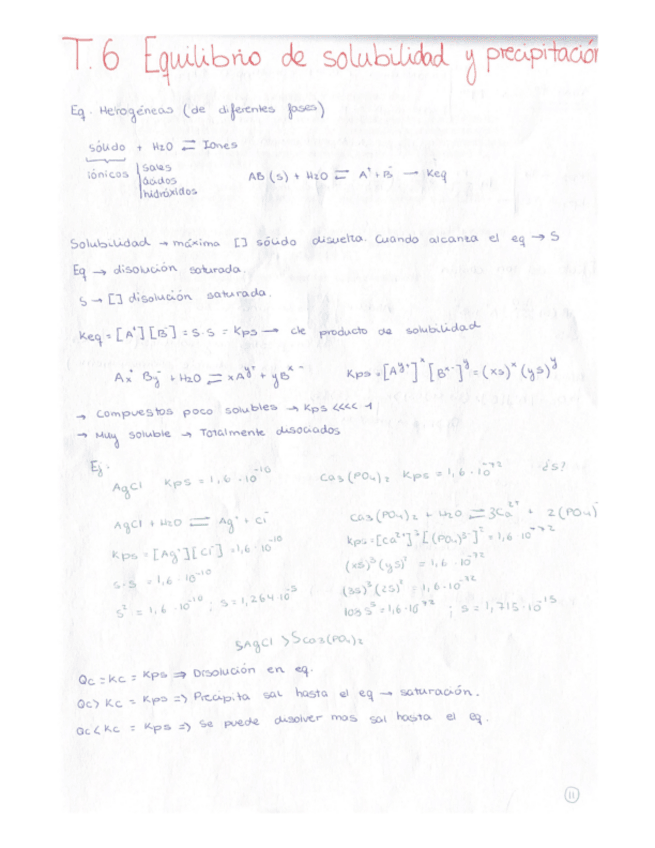 T.6 Equilibrio de solubilidad y precipitación
Eq. Heterogéneas (de diferentes fases)
sólido + H2O ⇌ Iones
iónicos | sales
ácidos
hidróxidos
AB (s) + H2O ⇌ A⁺ + B⁻ → Keq
Solubilidad → máxima [] sólido disuelta. Cuando alcanza el eq → S
Eq → disolución saturada.
S → [] disolución saturada.
Keq = [A⁺][B⁻] = S·S = Kps → cte producto de solubilidad
Ax⁺ By⁻ + H2O ⇌ xA^y+ + yB^x-
Kps = [A^y+]^x [B^x-]^y = (xs)^x (ys)^y
→ Compuestos poco solubles → Kps <<<< 1
→ Muy soluble → Totalmente disociados
Ej.
AgCl Kps = 1,6 · 10⁻¹⁰
Ca3(PO4)2 Kps = 1,6 · 10⁻⁷² ¿s?
AgCl + H2O ⇌ Ag⁺ + Cl⁻
Ca3(PO4)2 + H2O ⇌ 3Ca²⁺ + 2(PO4)
Kps = [Ag⁺][Cl⁻] = 1,6 · 10⁻¹⁰
Kps = [Ca²⁺]³[(PO4)³⁻]² = 1,6 · 10⁻⁷²
S·S = 1,6 · 10⁻¹⁰
(xs)³(ys)² = 1,6 · 10⁻⁷²
S² = 1,6 · 10⁻¹⁰ ; S = 1,264 · 10⁻⁵
(3s)³(2s)² = 1,6 · 10⁻⁷²
108 s⁵ = 1,6 · 10⁻⁷² ; S = 1,715 · 10⁻¹⁵
SAgCl > SCa3(PO4)2
Qc = Kc = Kps ⇒ Disolución en eq.
Qc > Kc = Kps ⇒ Precipita sal hasta el eq → saturación.
Qc < Kc = Kps ⇒ Se puede disolver mas sal hasta el eq.
11